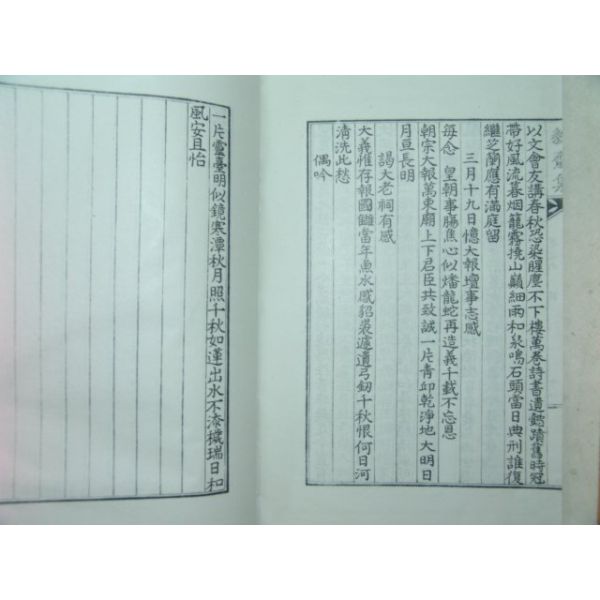 以文會友講春秋恐染腥塵不下樓萬卷詩書遺馥蹟舊時冠
帶好風流暮烟籠霧撓山巓細雨和泉鳴石頭當日典刑誰復
繼芝蘭應有滿庭留
三月十九日憶大報壇事志感
每念 皇朝事腸焦心似燔龍蛇再造義千載不忘恩
朝宗大報萬東廟上下君臣共致誠一片靑邱乾淨地大明日
月亘長明
謁大老祠有感
大義惟存報國讎當年魚水感貂裘遽遺弓釰千秋恨何日河
淸洗此愁
偶吟
一片靈臺明似鏡寒潭秋月照千秋如蓮出水不漆穢瑞日和
風安且怡